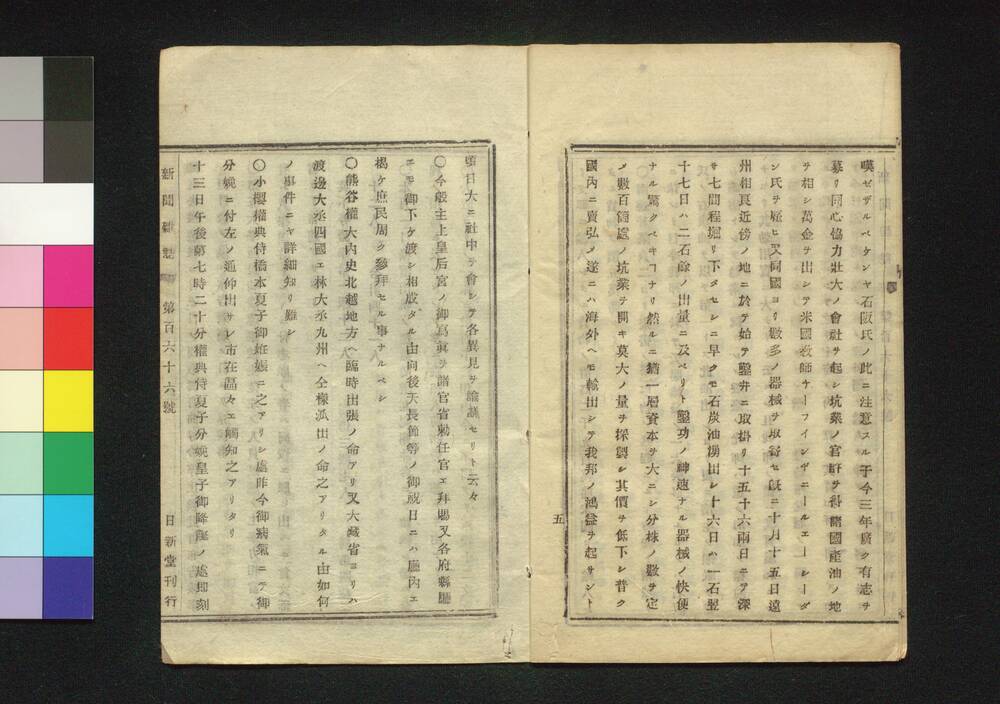 嘆ゼザルベケンヤ石阪氏ノ此ニ注意スル于今三年廣ク有志ヲ
募リ同心協力壯大ノ會社ヲ起シ坑業ノ官許ヲ得諸國産油ノ地
ヲ相シ萬金ヲ出シテ米國敎師ケーフインザニールエーシーダ
ン氏ヲ雇ヒ又同國ヨリ數多ノ器械ヲ取寄セ既ニ十月十五日遠
州相良近傍ノ地ニ於テ始テ鑿井ニ取掛リ十五十六兩日ニテ深
サ七間程掘リ下タセシニ早クモ石炭油湧出シ十六日ハ一石翌
十七日ハ二石餘ノ出量ニ及ベリト鑿功ノ神速ナル器械ノ快便
ナル驚クベキヿナリ然ルニ猶一層資本ヲ大ニシ分株ノ數ヲ定
メ數百箇處ノ坑業ヲ開キ莫大ノ量ヲ採製シ其價ヲ低下シ普ク
國内ニ賣弘メ遂ニハ海外ヘモ輸出シテ我邦ノ鴻益ヲ起サント
五
頃日大ニ社中ヲ會シテ各異見ヲ論議セリト云々
〇今般主上皇后宮ノ御寫眞ヲ諸官省勅任官エ拜賜又各府縣廳
エモ御下ケ渡シ相成タル由向後天長節等ノ御祝日ニハ廳内エ
揭ケ庶民周ク參拜セル事ナルベシ
〇熊谷權大内史北越地方ヘ臨時出張ノ命アリ又大藏省ヨリハ
渡邊大丞四國エ林大丞九州ヘ仝樣派出ノ命之アリタル由如何
ノ事件ニヤ詳細知リ難シ
〇小櫻權典侍橋本夏子御妊娠ニ之アリシ處昨今御病氣ニテ御
分娩ニ付左ノ通仰出サレ市在區々エ觸知之アリタリ
十三日午後第七時二十分權典侍夏子分娩皇子御降誕ノ處即刻
新聞雜誌 第百六十六號 日新堂刊行